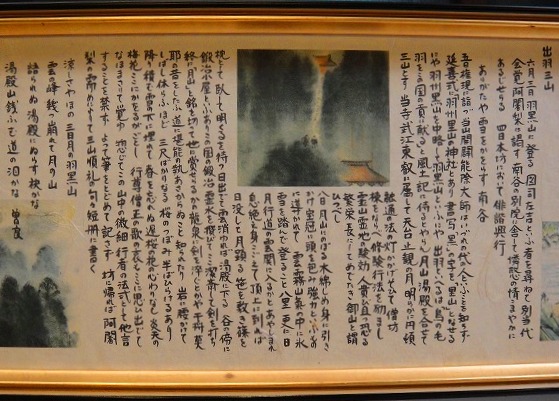 出羽三山
六月三日羽黒山に登る 図司左吉といふ者を尋ねて別当代
会覚阿闍梨に謁す 南谷の別院に舎して憐愍の情こまやかに
あるじせらる 四日本坊において俳諧興行
ありがたや雪をかをらす南谷
五日権現に詣づ 当山開闢能除大師はいづれの代の人といふことを知らず
延喜式に羽州里山の神社とあり 書写黒の字を里山となせる
にや 羽州黒山を中略して羽黒山といふにや 出羽といへるは鳥の毛
羽をこの国の貢に献ると風土記に侍るとやらん 月山湯殿を合せて
三山とす 当寺武江東叡に属して天台止観の月明らかに円頓
融通の法の灯かかげそひて 僧坊
棟をならべ修験行法を励まし
霊山霊地の験効人貴び且つ恐る
繁栄長にしてめでたき御山と謂
ひつべし
八日月山にのぼる 木綿しめ身に引き
かけ宝冠に頭を包み強力といふもの
に導かれて 雲霧山気の中に氷
雪を踏んで登ること八里 更に日
月行道の雲関に入るかとあやしまれ
息絶え身こごえて頂上に到れば
日没して月顕る 笹を敷き篠を
枕として臥して明くるを待つ 日出でて雲消ゆれば湯殿に下る 谷の傍に
鍛冶小屋といふあり この国の鍛冶霊水を撰びてここに潔斎して剣を打ち
終に月山と銘を切つて世に賞せらる かの龍泉に剣を淬ぐとかや 干将莫
耶の昔をしたふ 道に堪能の執あさからぬこと知られたり 岩に腰かけて
しばし休らふほど 三尺ばかりなる桜のつぼみ半ばひらけるあり
降り積む雪の下に埋れて 春を忘れぬ遅桜の花の心わりなし 炎天の
梅花ここにかをるがごとし 行尊僧正の歌の哀れもここに思ひ出でて
なほまさりて覚ゆ 惣じてこの山中の微細 行者の法式として他言
することを禁ず よつて筆をとどめて記さず 坊に帰れば 阿闍
梨の需めによりて三山順礼の句々短冊に書く
涼しさやほの三日月の羽黒山
雲の峰幾つ崩れて月の山
語られぬ湯殿にぬらす袂かな
湯殿山銭ふむ道の泪かな 曽良